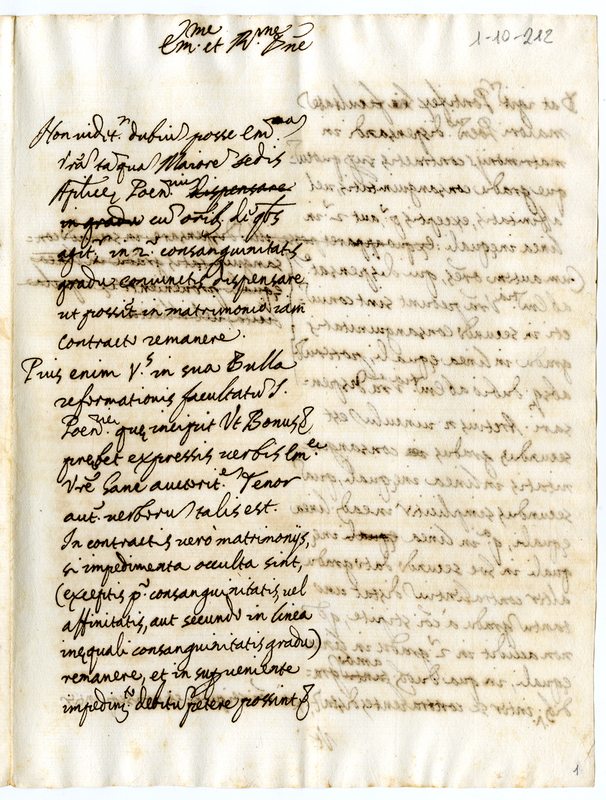 1-10-212
Em.me et R.me Dne
Non vidit.r dubiũ posse Em.
Vrã tã quã Maiore sedis
Aplicę Poen. dispensare
in gradu cũ oribs
agit.r in 2.º consanguinitatis
gradu coniunctis dispensare
ut possit in matrimonio iam
contracto remanere.
Pius enim V.s in sua Bulla
reformationis facultatũ S.
Poen. quę incipit Ut Bonus
prębet expressis verbis Em.
Vrę hanc auctorit.e Tenor
aut. verborũ talis est.
In contractis vero matrimonijs,
si impedimenta occulta sint,
(exceptis p.º consanguinitatis, vel
affinitatis, aut secundo in linea
inęquali consanguinitatis gradu)
remanere, et in superveniente
impedim.to debitũ petere possint
1